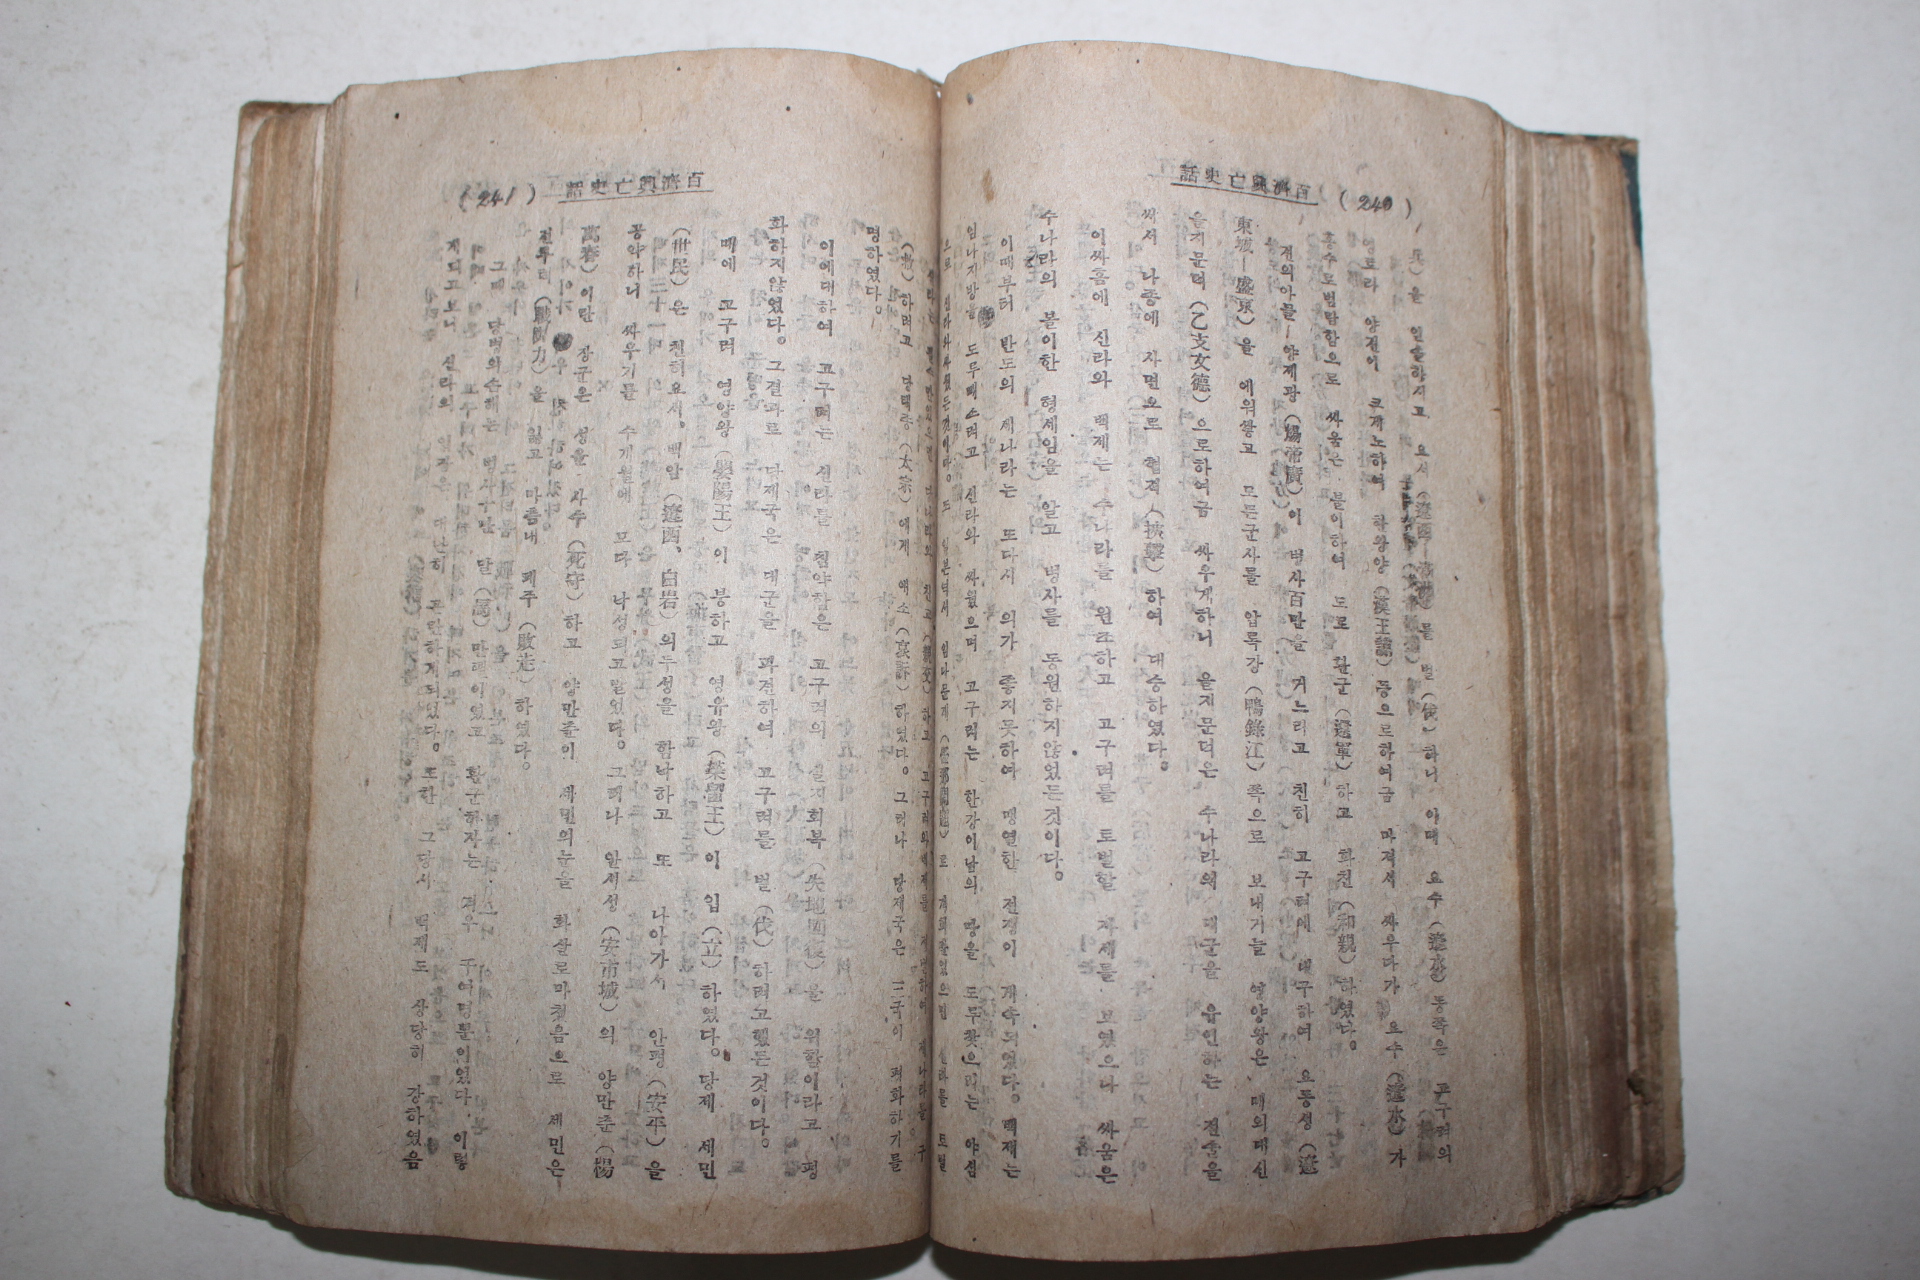 百濟興亡史話 (240)
兵)을 인솔하시고 요서 를 벌(伐)하니 이때 요수(遼水)동쪽은 고구려의
영토라 양견이 크게노하여 하왕양(漢王諒)등으로하여금 마저서 싸우다가 요수(遼水)가
홍수로범람함으로 싸움은 불이하여 도로 환군(還軍)하고 화친(和親)하였다。
견의아들—양제광(煬帝廣)이 병사百만을 거느리고 친히 고구려에 대구하여 요동성(遼
東城—盛京)을 에워쌓고 모든군사를 압록강(鴨錄江)쪽으로 보내거늘 영양왕은 대외대신
을지문덕(乙支文德)으로하여금 싸우게하니 을지문덕은 수나라의 대군을 유인하는 전술을
써서 나종에 사면으로 협격(挾擊)하여 대승하였다。
이싸흠에 신라와 백제는 수나라를 원조하고 고구려를 토벌할 자세를 보였으나 싸움은
수나라의 불이한 형세임을 알고 병사를 동원하지않었든것이다。
이때부터 반도의 제나라는 또다시 의가 좋지못하여 맹열한 전쟁이 계속되었다。백제는
임나지방을 도루떼스려고 신라와 싸웠으며 고구려는 한강이남의 땅을 도루찾으려는 야심
으로 신라와싸웠든것이다。또 일본여서 임나문제 로 신라를 토벌
百濟興亡史話 (241)
하고 고구려와백제를 제나라를 구
하려고 당태종(太宗)에게 애소(哀訴)하였다。그러나 당제국은 三국이 평화하기를
명하였다。
이에대하여 고구려는 신라를 침약함은 고구려의 실지회복(失地回復)을 위함이라고 평
화하지않었다。그결과로 당제국은 대군을 파견하여 고구려를 벌(伐)하려고했든것이다。
때에 고구려 영양왕(嬰陽王)이 붕하고 영유왕(榮留王)이 입(立)하였다。당제 세민
(世民)은 친히요서、백암(遼西、白岩)의두성을 함낙하고 또 나아가서 안평(安平)을
공약하니 싸우기를 수개월에 모다 낙성되고말었다。그러나 안시성(安市城)의 양만춘(楊
萬春)이란 장군은 성을 사수(死守)하고 양만춘이 세민의눈을 화살로마첬음으로 세민은
전투력(戰鬪力)을 잃고 마츰내 패주(敗走)하였다。
그때 당병의손해는 병사구만 말(馬)만필이었고 환군하자는 겨우 수여명뿐이었다 이렇
게되고보니 신라의 입장은 대단히 곤란하게되었다。또한 그당시 백제도 상당히 강하였음